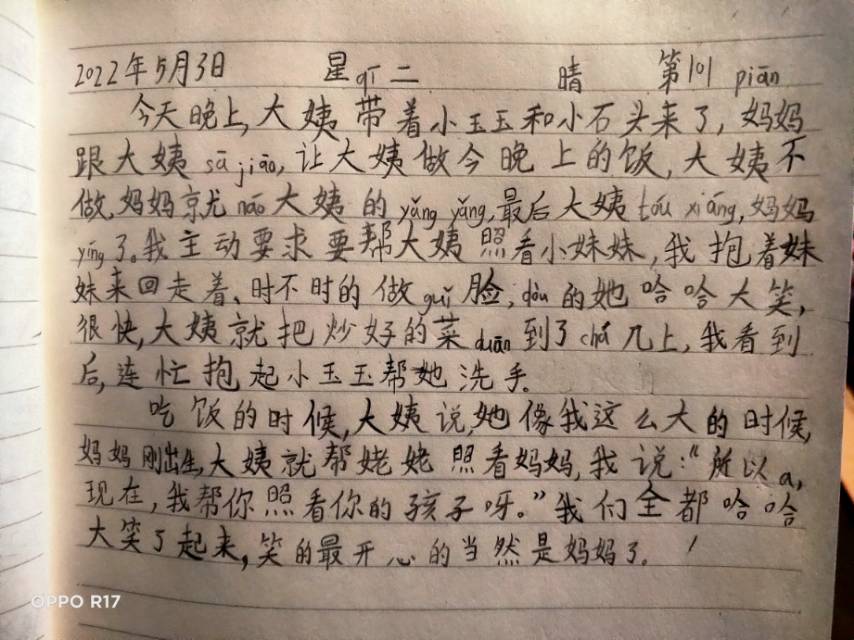 2022年5月3日 星qī二 晴 第101 piān
今天晚上,大姨带着小玉玉和小石头来了,妈妈
跟大姨sā jiāo,让大姨做今晚上的饭,大姨不
做,妈妈就náo大姨的yǎng yǎng,最后大姨tóu xiáng,妈妈
yíng了。我主动要求要帮大姨照看小妹妹,我抱着妹
妹来回走着、时不时的做guǐ脸,dòu的她哈哈大笑,
很快,大姨就把炒好的菜duān到了chá几上,我看到
后,连忙抱起小玉玉帮她洗手。
吃饭的时候,大姨说,她像我这么大的时候,
妈妈刚出生,大姨就帮姥姥照看妈妈,我说:“所以a,
现在,我帮你照看你的孩子呀。”我们全都哈哈
大笑了起来,笑的最开心的当然是妈妈了。
OPPO R17